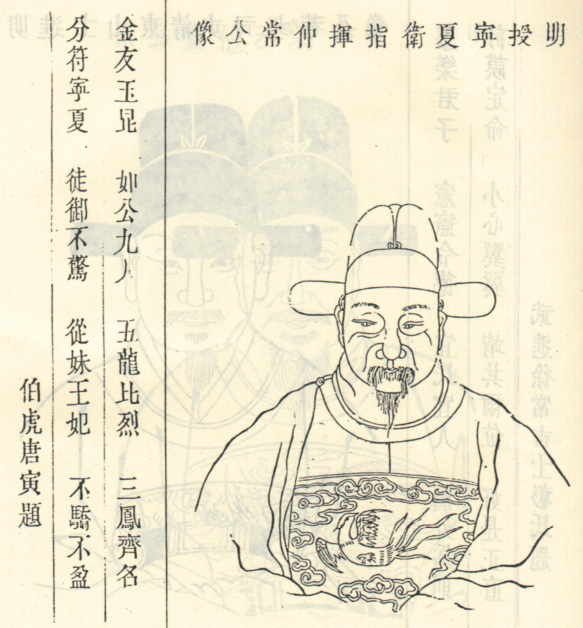 明授寧夏衛指揮仲常公像
金友玉昆 如公九人 五龍比烈 三鳳齊名
分符寧夏 徒御不驚 從妹王妃 不驕不盈
伯虎唐寅題